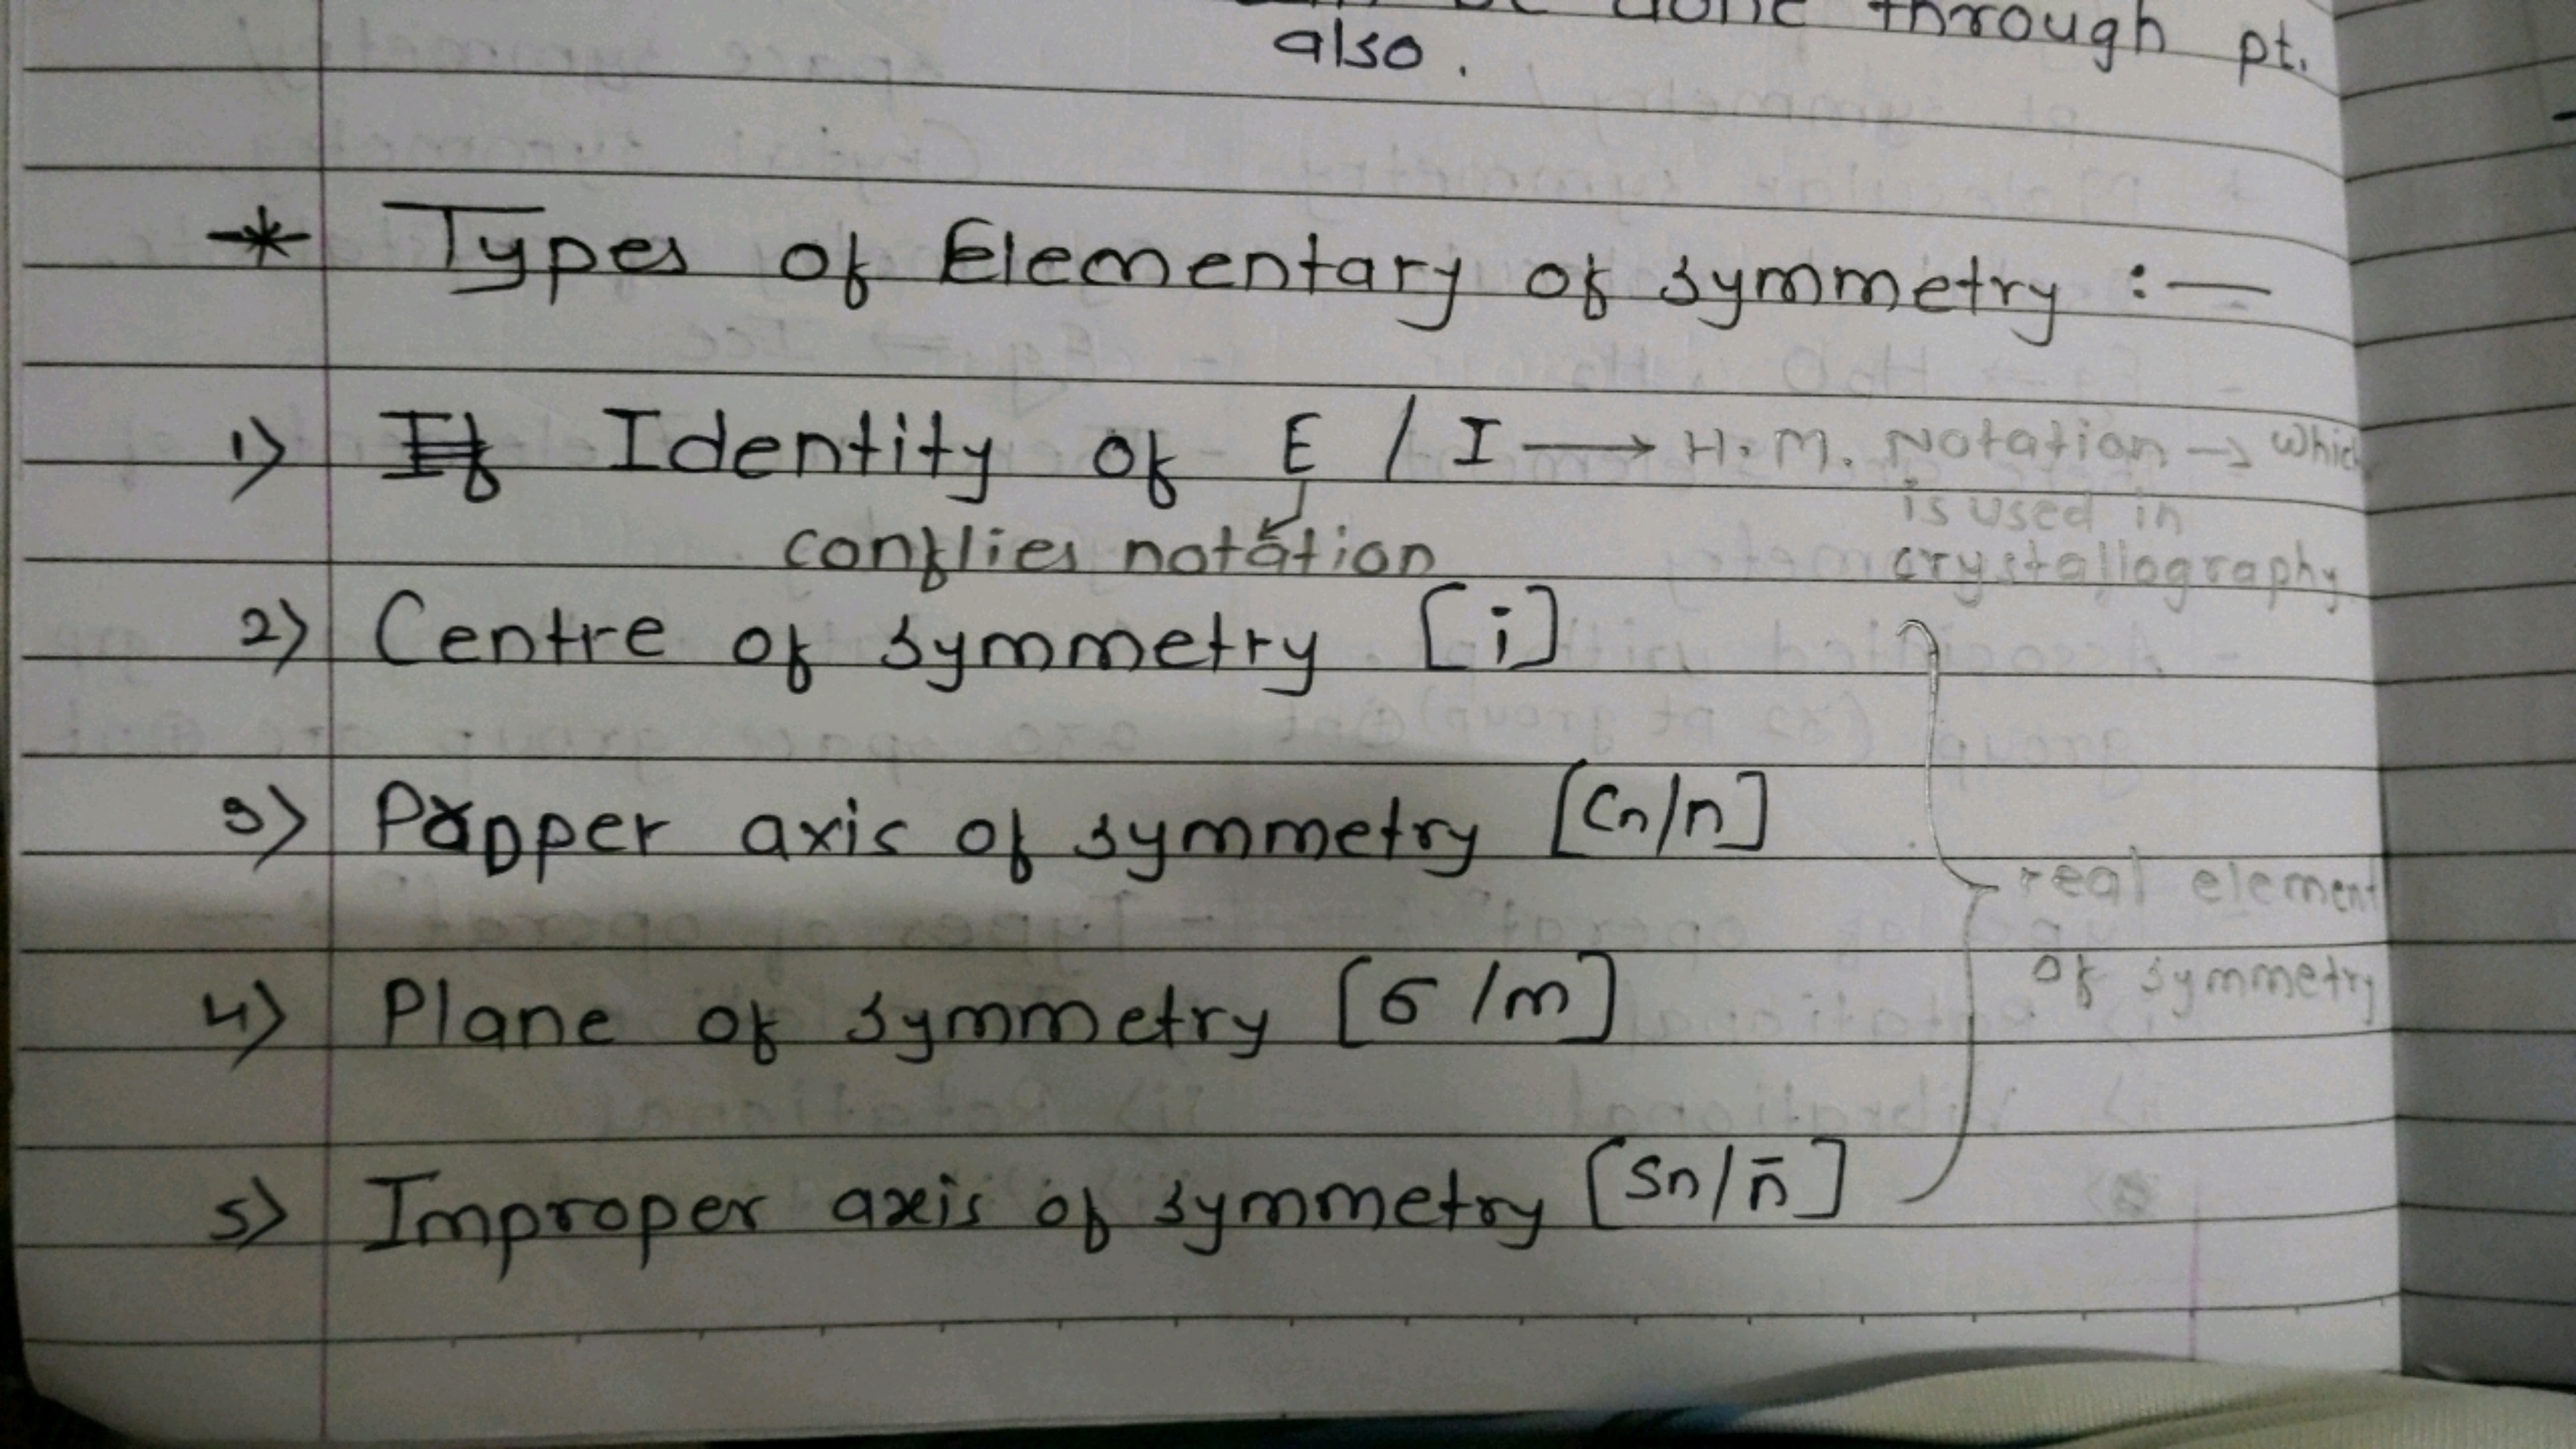 be done through pt.
also.
* Types of Elementary of symmetry :—
1) If Identity of E / I → H.M. Notation → which
is used in
conflies notation
crystallography
2) Centre of symmetry [i]
3) Propper axis of symmetry [Cn/n]
real element
4) Plane of symmetry [σ /m]
of symmetry
5) Improper axis of symmetry [Sn/n̄]